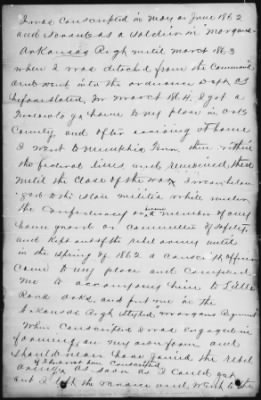 I was Conscripted in May or June 1862
and served as a Soldier in Morgans
Arkansas Regt until March 1863
when I was detached from the Command
and went into the ordnance Dept CS
In March 1864, I got a
furlough to go home to my place in
County and after arriving at home
I went to Memphis Tenn then within
the federal lines and remained there
until the close of the war I never belon
ged to the State militia while under
the Confederacy or a member of any
home guard or Committee of Safety
and Kept out of the rebel army until
in the spring of 1862 a conscript officer
Came to my place and Compelled
me to accompany him to Little
Rock Arks. and put me in the
Arkansas Regt styled Morgans Regiment
When Conscripted I was engaged in
farming on my own farm and
should never have joined the Rebel
if I had not been Conscripted
Army as soon as I could get
out I left the service and went to the